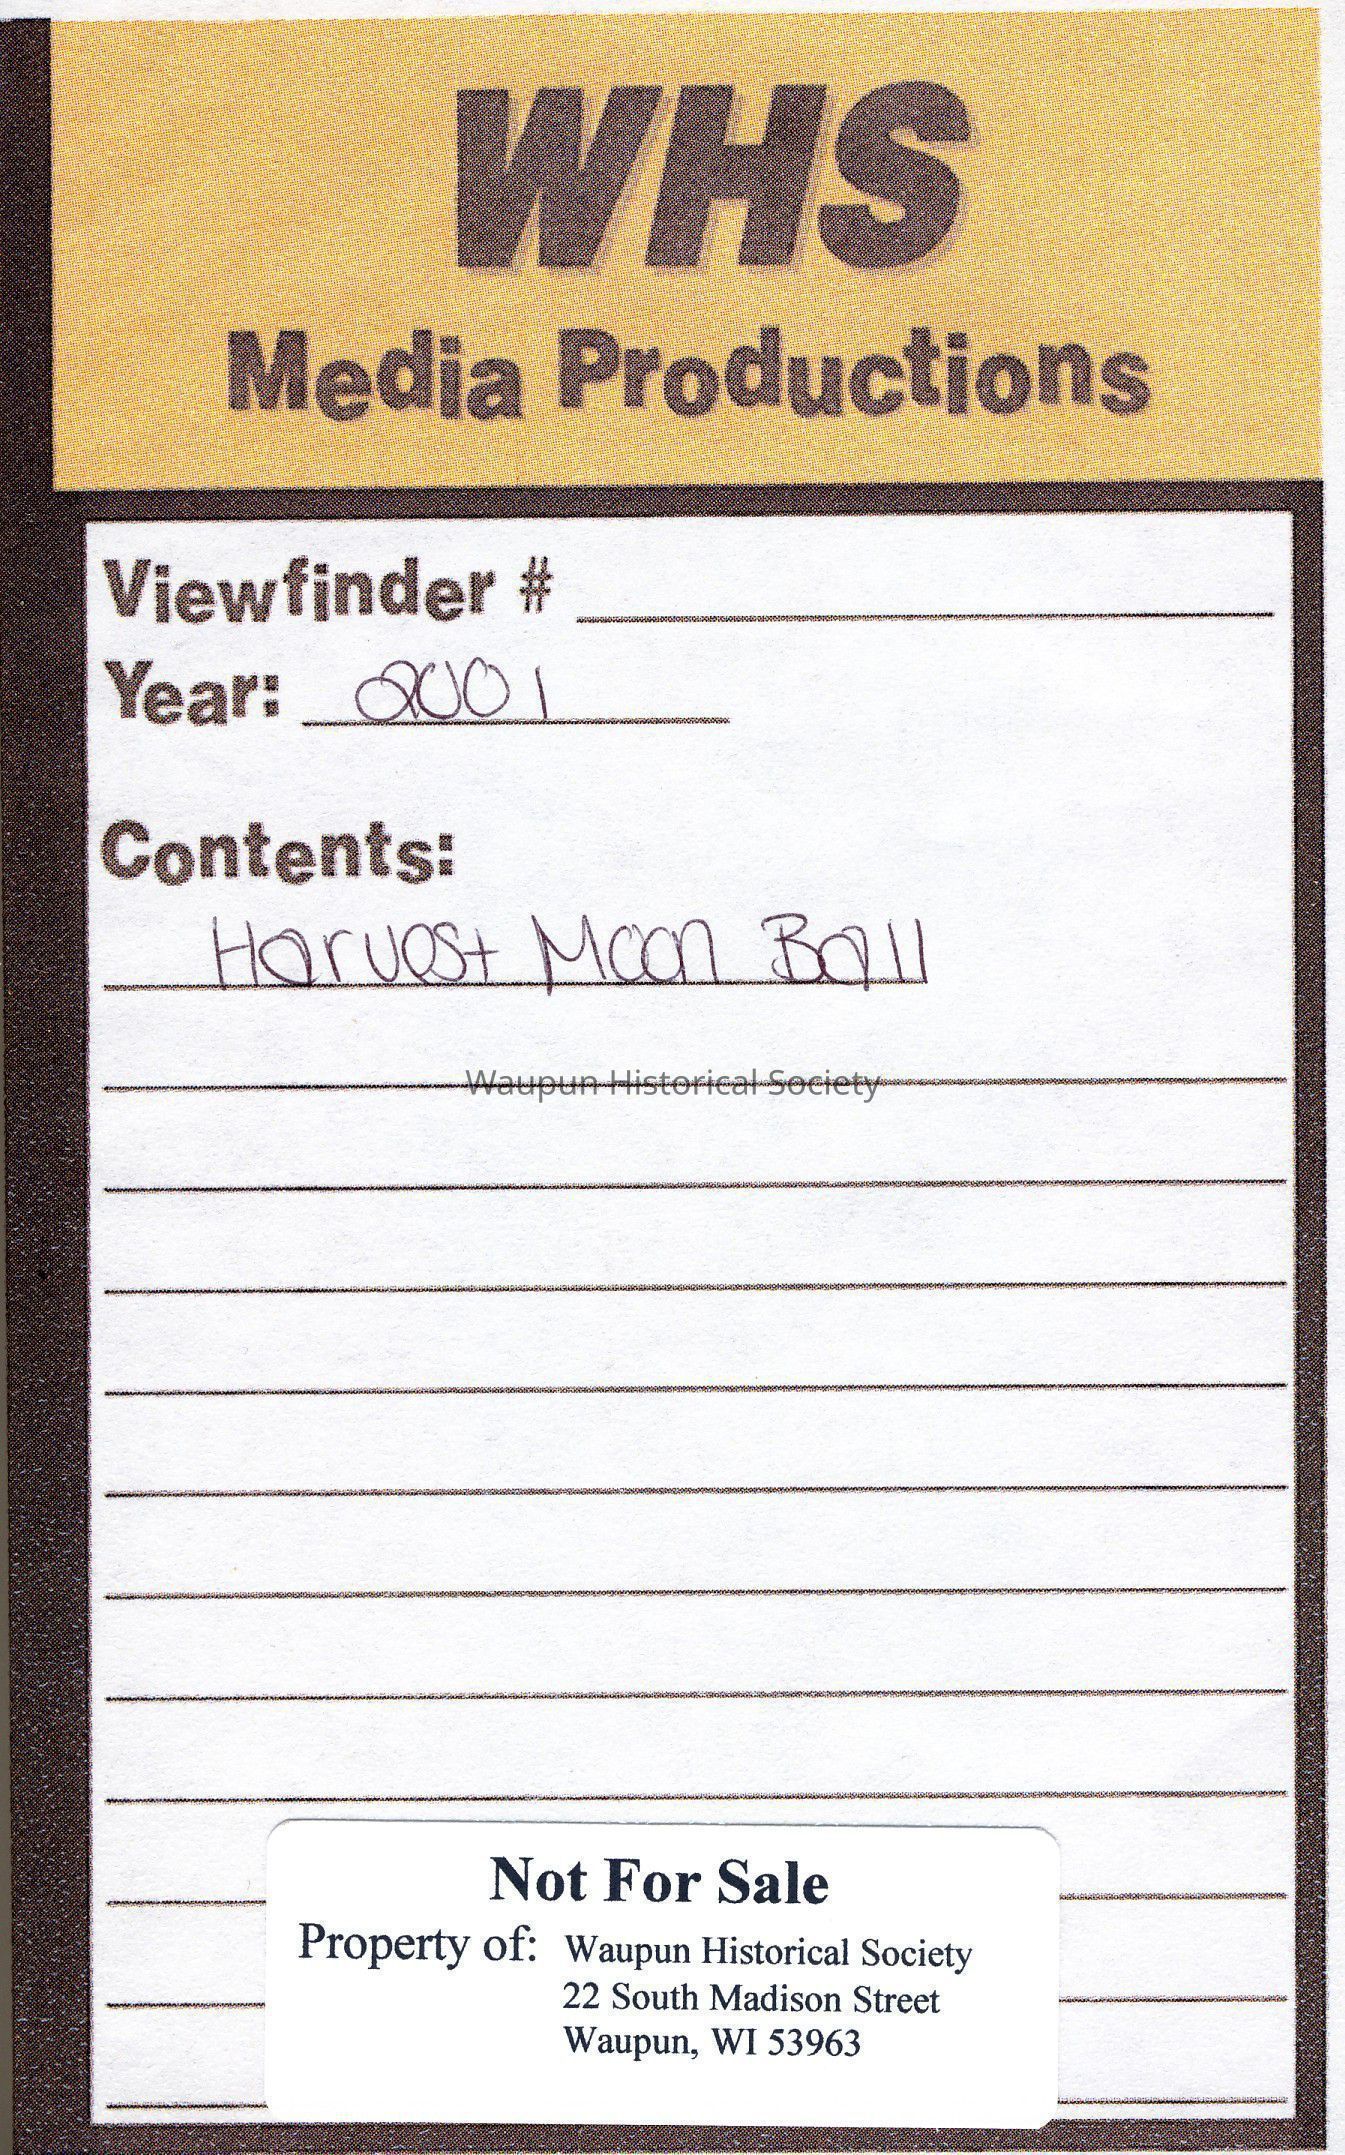 WHS
Media Productions
Viewfinder #
Year: 2001
Contents:
Harvest Moon Ball
Waupun Historical Society
Not For Sale
Property of: Waupun Historical Society
22 South Madison Street
Waupun, WI 53963